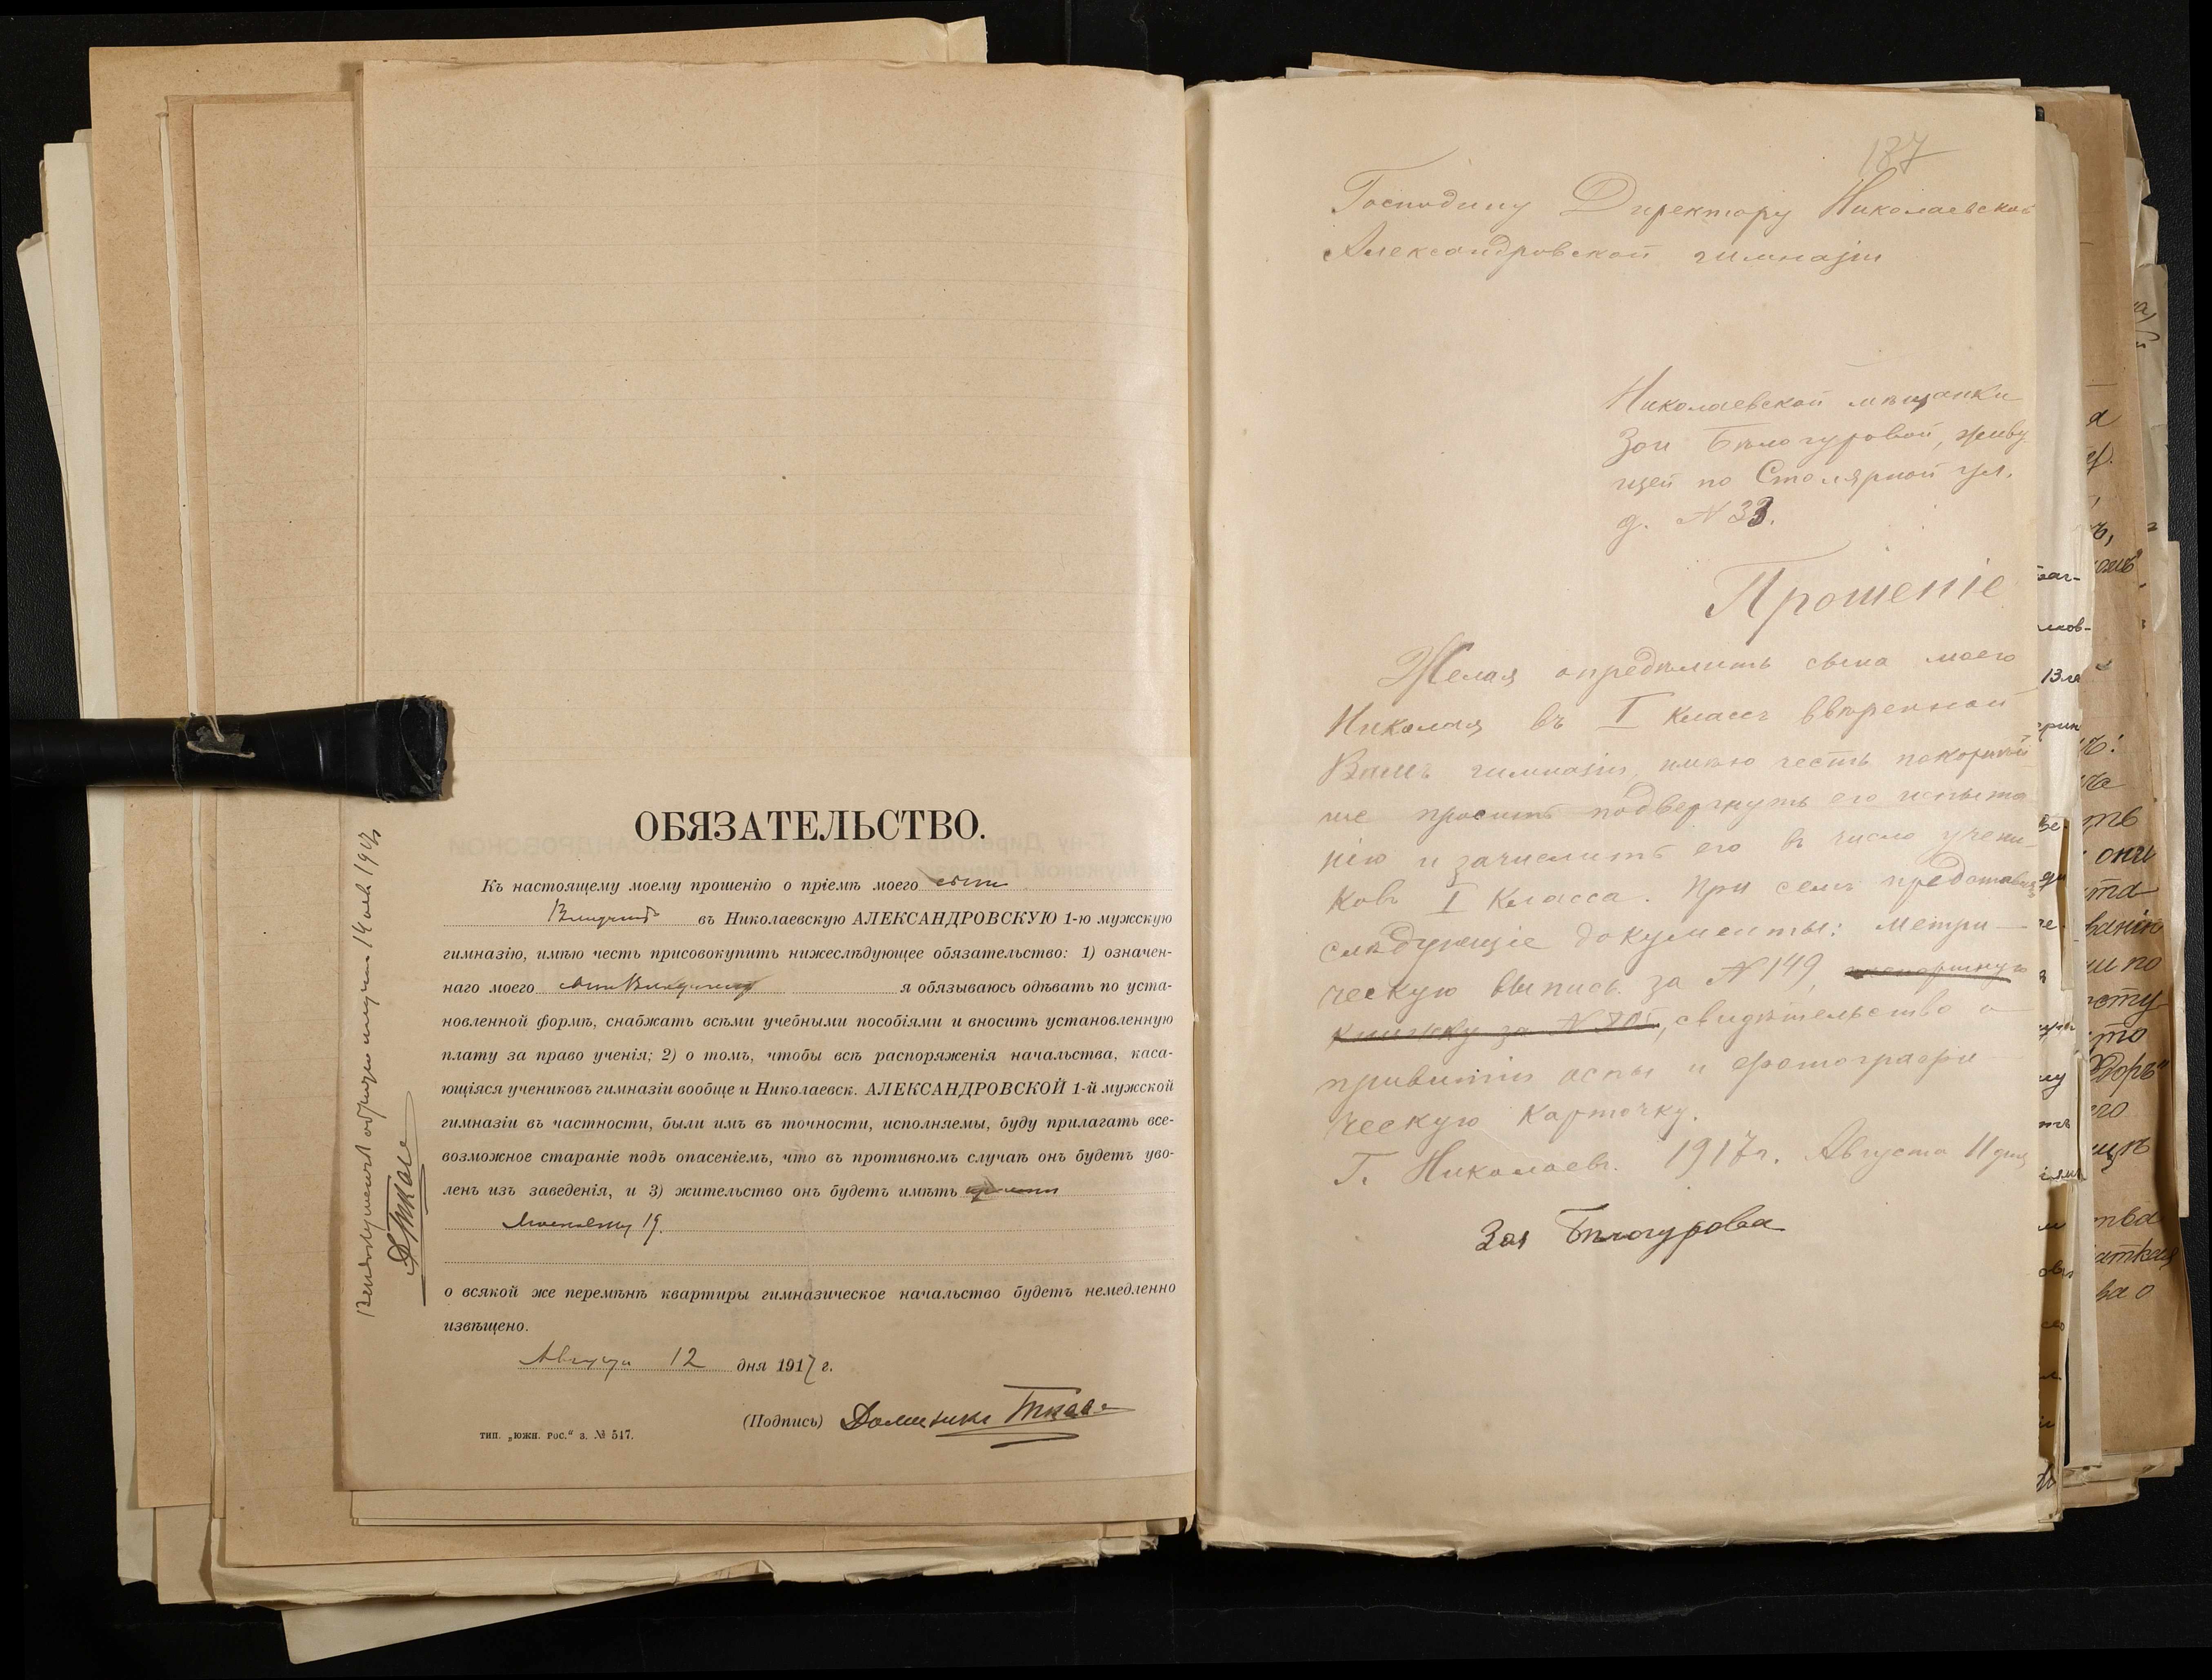 ОБЯЗАТЕЛЬСТВО.
Къ настоящему моему прошенію о пріемѣ моего сына
въ Николаевскую АЛЕКСАНДРОВСКУЮ 1-ю мужскую
гимназію, имѣю честь присовокупить нижеслѣдующее обязательство: 1) означен-
наго моего я обязываюсь одѣвать по уста-
новленной формѣ, снабжать всѣми учебными пособіями и вносить установленную
плату за право ученія; 2) о томъ, чтобы всѣ распоряженія начальства, каса-
ющіяся учениковъ гимназіи вообще и Николаевск. АЛЕКСАНДРОВСКОЙ 1-й мужской
гимназіи въ частности, были имъ въ точности, исполняемы, буду прилагать все-
возможное стараніе подъ опасеніемъ, что въ противномъ случаѣ онъ будетъ уво-
ленъ изъ заведенія, и 3) жительство онъ будетъ имѣть
19.
о всякой же перемѣнѣ квартиры гимназическое начальство будетъ немедленно
извѣщено.
Августа 12 дня 1917 г.
(Подпись)
тип. „южн. рос.“ з. № 517.
187
Господину Директору Николаевской
Александровской гимназіи
Николаевской мѣщанки
Зои Бѣлогуровой, живу
щей по Столярной ул.
д. N 33.
Прошеніе
Желая опредѣлить сына моего
Николая въ I классъ ввѣренной
Вамъ гимназіи, имѣю честь покорнѣй
ше просить подвергнуть его испыта
нію и зачислить его въ число учени-
ковъ I класса. При семъ представляю
слѣдующіе документы: метри-
ческую выпись за N 149,
книжку за N свидѣтельство о
привитіи оспы и фотографи
ческую карточку.
Г. Николаевъ. 1917 г. Августа 11 дня
Зоя Бѣлогурова